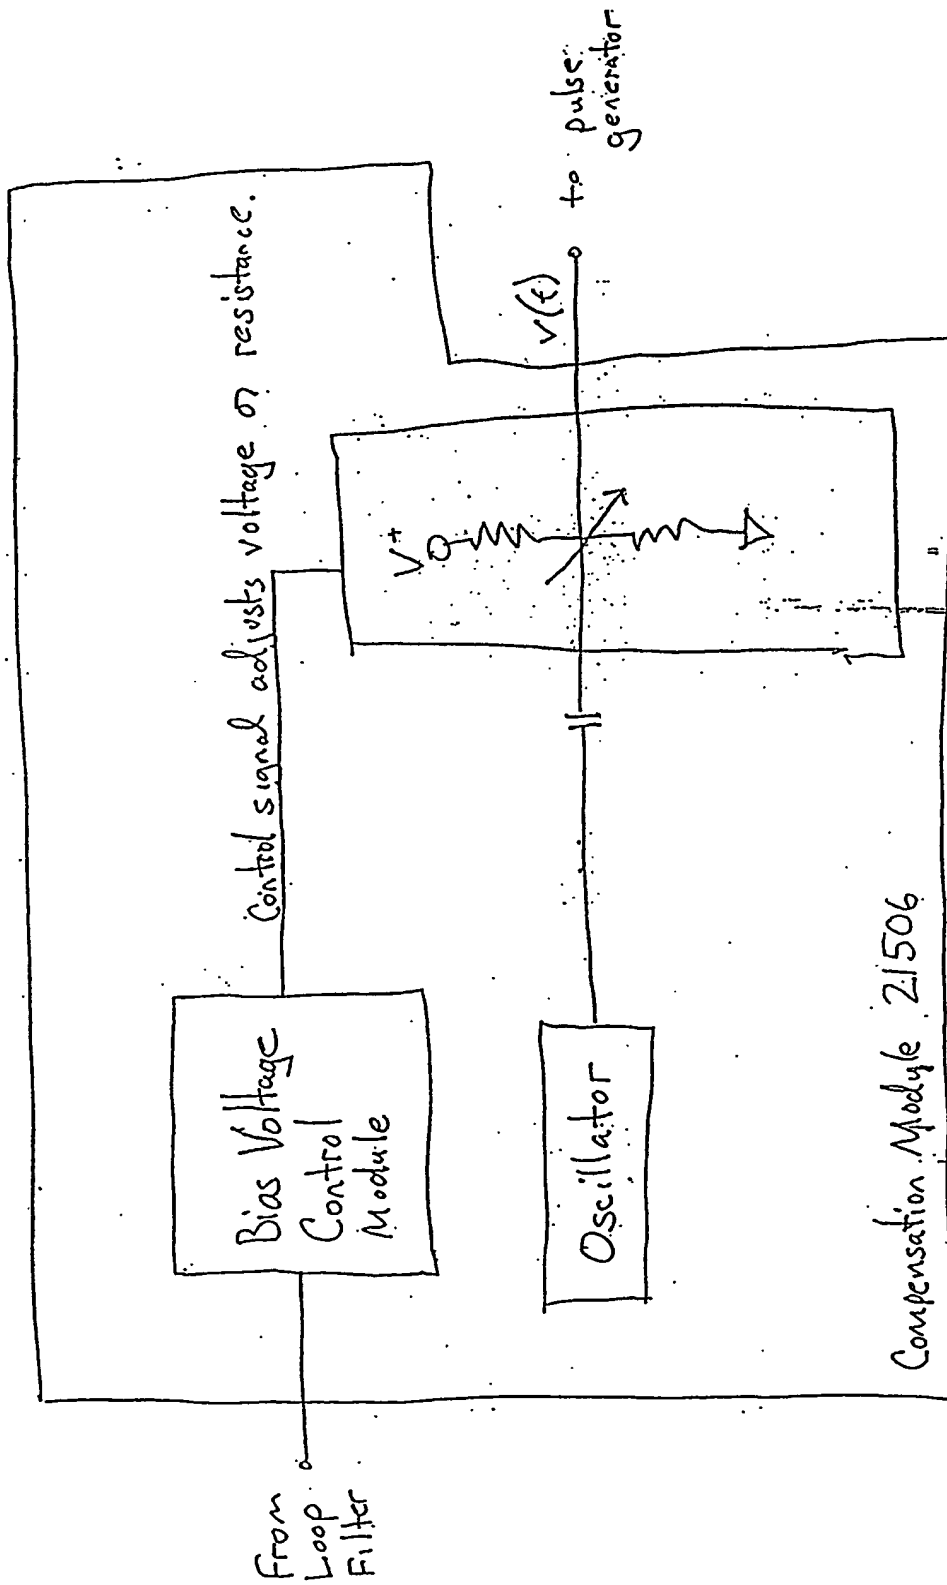 From
Loop
Filter
Bias Voltage
Control
Module
Control signal adjusts voltage or resistance.
Oscillator
V+
v(t)
to pulse
generator
Compensation Module 21506